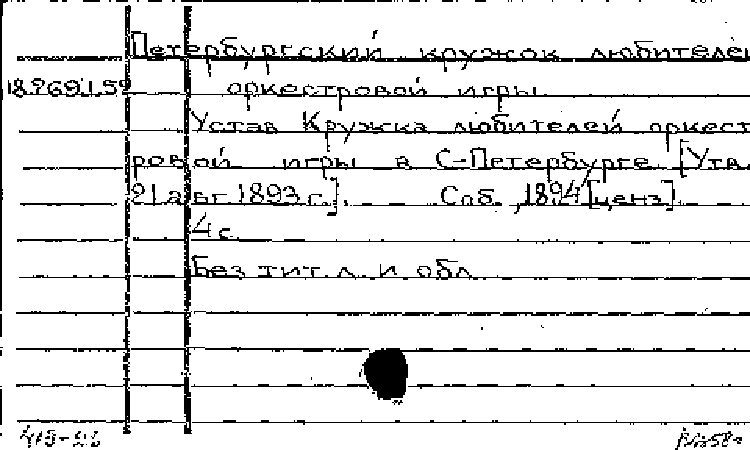 Петербургский кружок любителей
18.769.1.59 оркестровой игры.
Устав Кружка любителей оркест
ровой игры в С-Петербурге. [Утв.
21 авг. 1893 г.]. Спб., 1894 [ценз].
4 с.
Без тит. л. и обл.